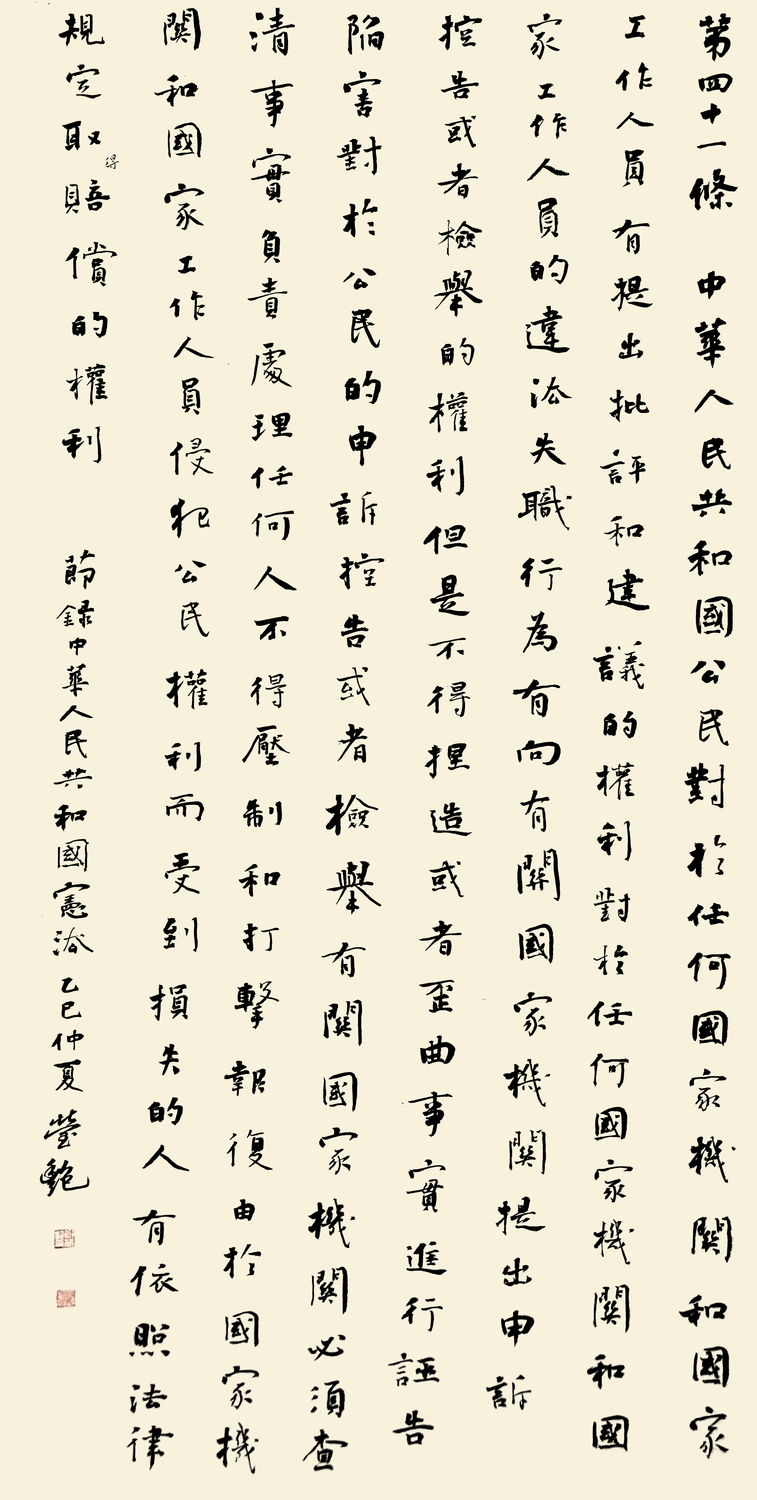 第四十一條 中華人民共和國公民對於任何國家機關和國家
工作人員有提出批評和建議的權利對於任何國家機關和國
家工作人員的違法失職行為有向有關國家機關提出申訴
控告或者檢舉的權利但是不得捏造或者歪曲事實進行誣告
陷害對於公民的申訴控告或者檢舉有關國家機關必須查
清事實負責處理任何人不得壓制和打擊報復由於國家機
關和國家工作人員侵犯公民權利而受到損失的人有依照法律
規定取得賠償的權利
節錄中華人民共和國憲法乙巳仲夏